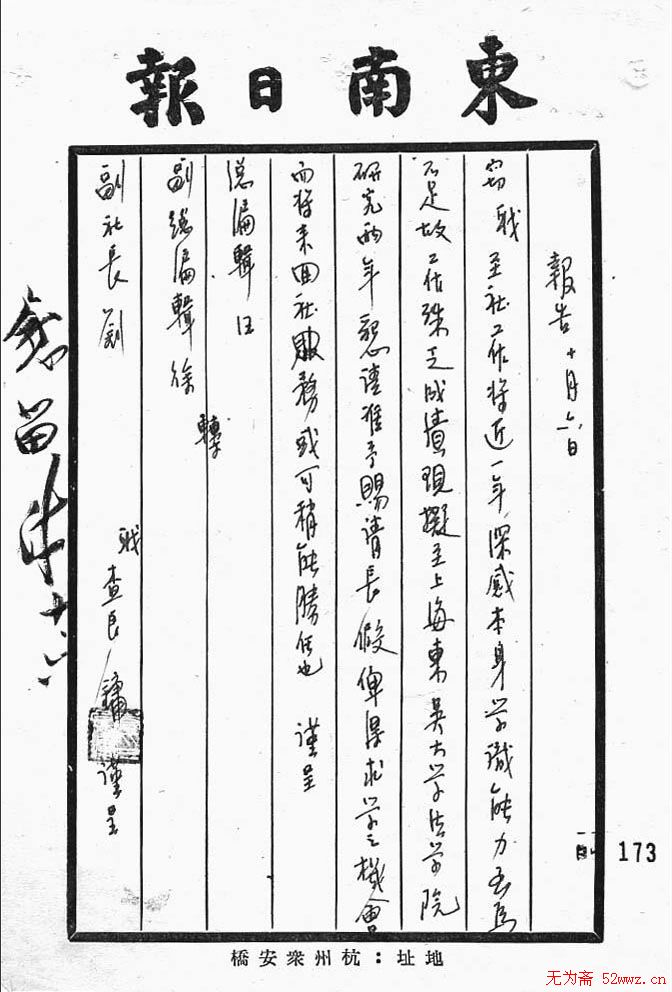 東南日報
報告 十月六日
竊職至社工作将近一年深感本身学識能力至為
不足故工作殊乏成績現擬至上海東吳大学法学院
研究兩年懇請准予賜請長假俾得求学之機會
而将來回社服務或可稍能勝任也 謹呈
總編輯汪
副總編輯徐 轉
副社長劉
職查良鏞謹呈
慰留
地址：杭州衆安橋
173
无为斋 52wwz.cn